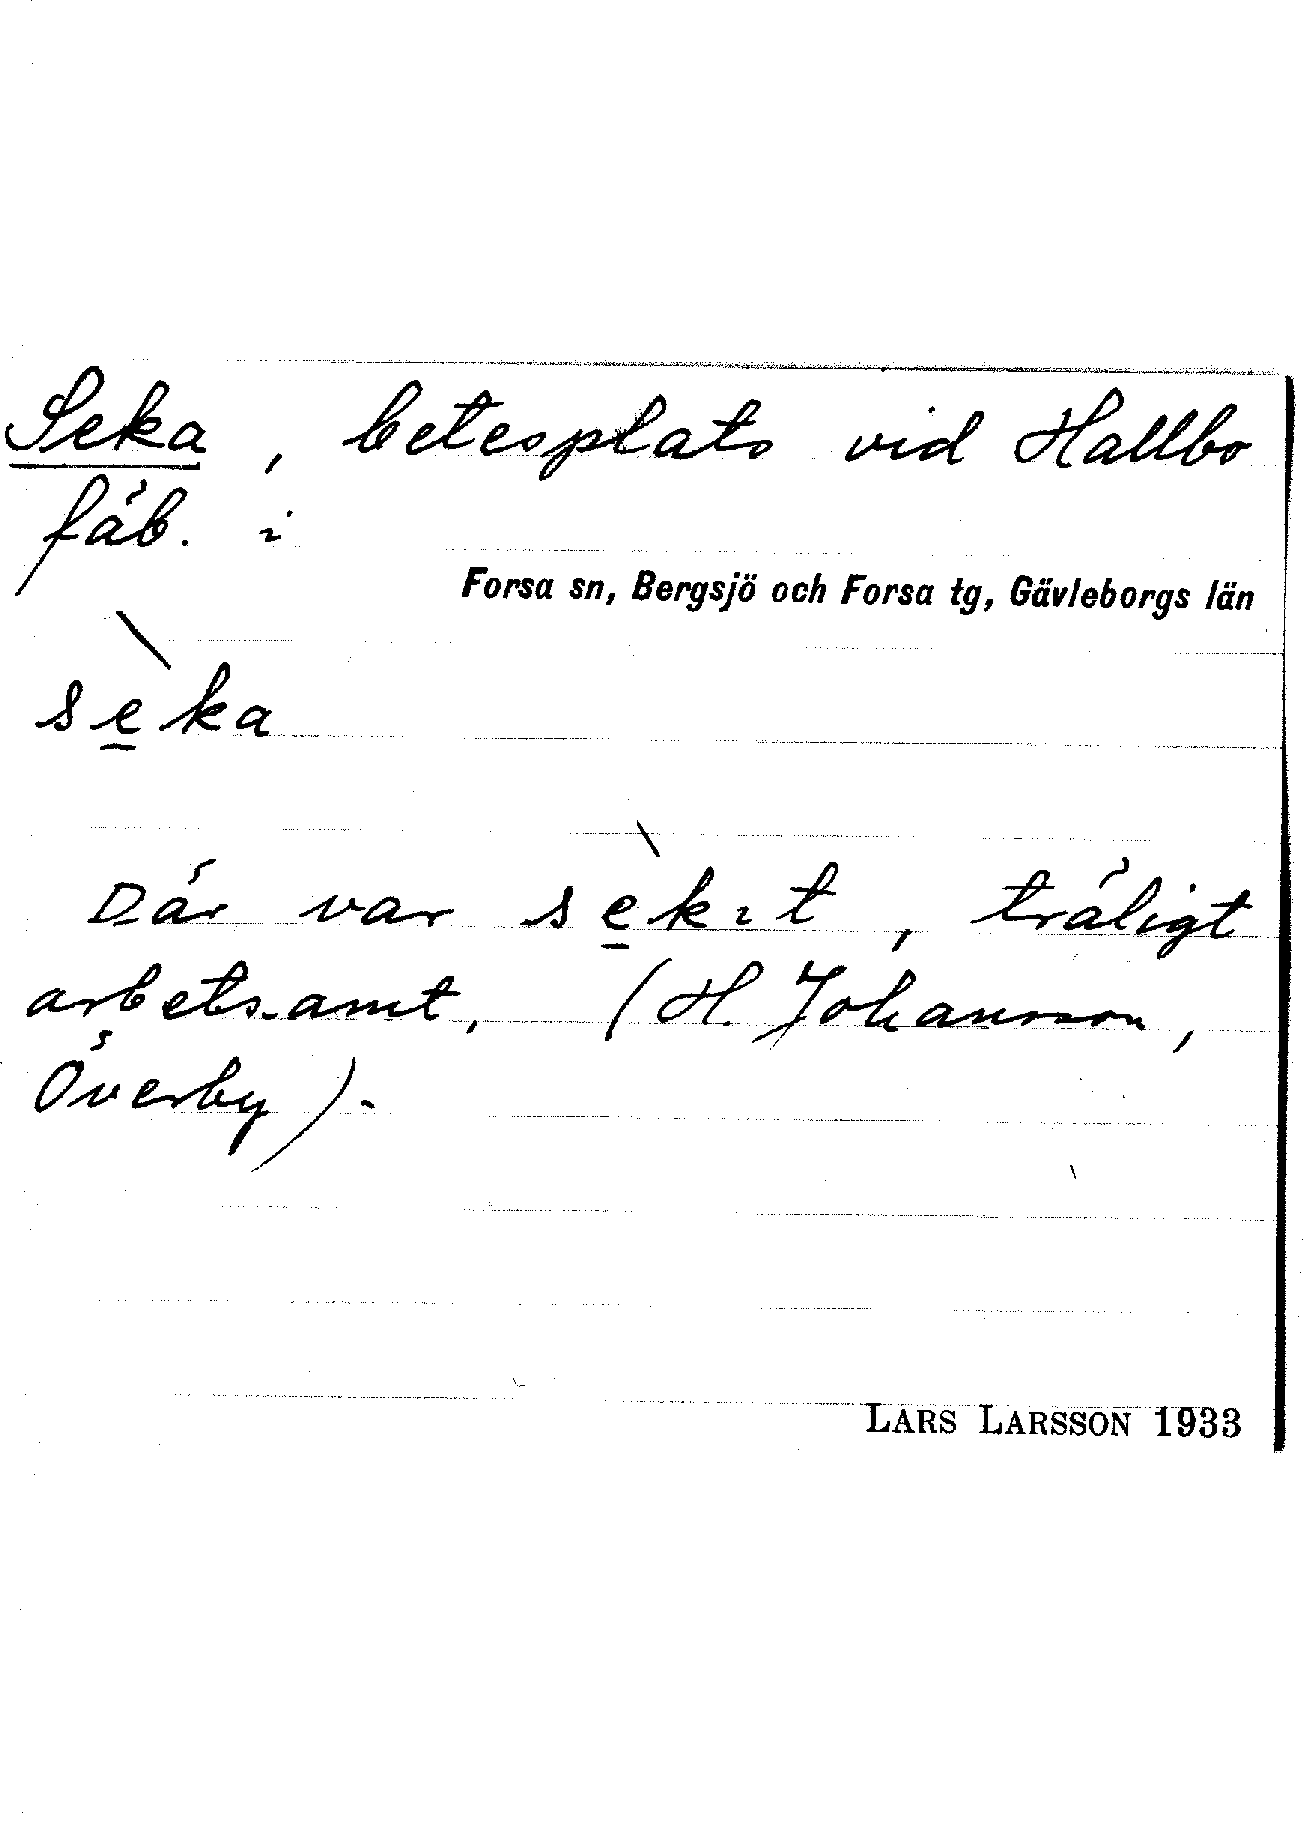 Seka, betesplats vid Hallbo
fäb. i
Forsa sn, Bergsjö och Forsa tg, Gävleborgs län
sèka
Där var sèkit, träligt
arbetsamt, (H. Johansson,
Överby).
LARS LARSSON 1933